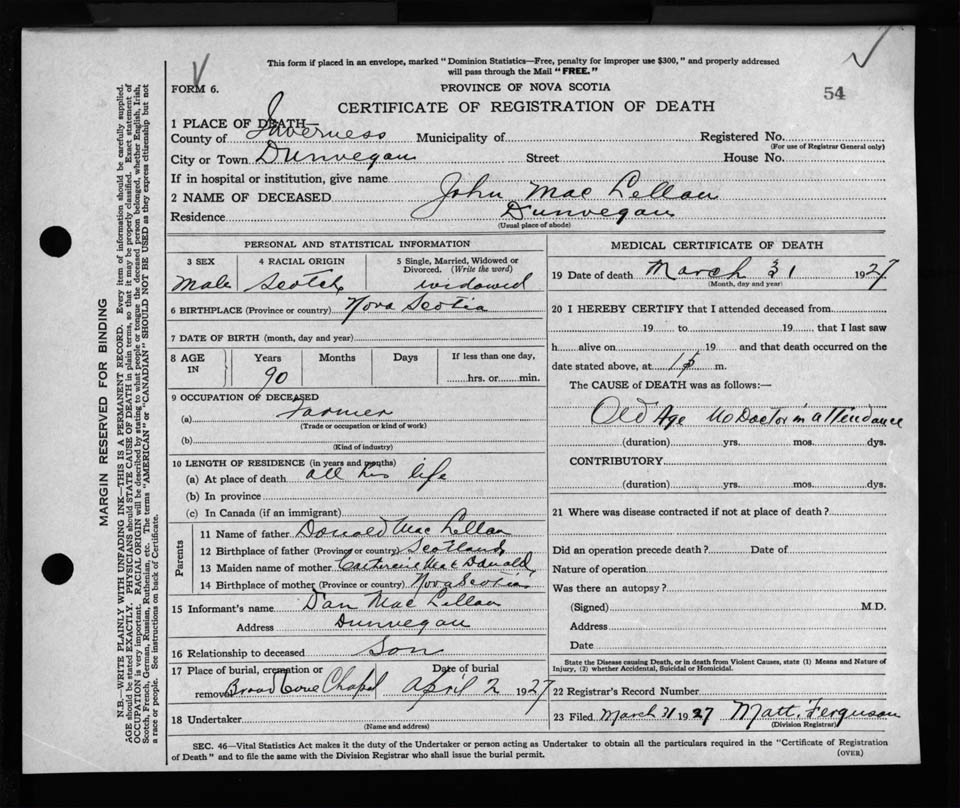 This form if placed in an envelope, marked "Dominion Statistics—Free, penalty for improper use $300," and properly addressed
will pass through the Mail "FREE."
FORM 6.
PROVINCE OF NOVA SCOTIA
54
CERTIFICATE OF REGISTRATION OF DEATH
1 PLACE OF DEATH—
County of Inverness Municipality of Registered No.
(For use of Registrar General only)
City or Town Dunvegan Street House No.
If in hospital or institution, give name
2 NAME OF DECEASED John Mac Lellan
Residence Dunvegan
(Usual place of abode)
PERSONAL AND STATISTICAL INFORMATION
3 SEX 4 RACIAL ORIGIN 5 Single, Married, Widowed or
Divorced. (Write the word)
Male Scotch widowed
6 BIRTHPLACE (Province or country) Nova Scotia
7 DATE OF BIRTH (month, day and year)
8 AGE IN Years Months Days If less than one day,
90 hrs. or min.
9 OCCUPATION OF DECEASED
(a) Farmer
(Trade or occupation or kind of work)
(b)
(Kind of industry)
10 LENGTH OF RESIDENCE (in years and months)
(a) At place of death all his life
(b) In province
(c) In Canada (if an immigrant)
Parents
11 Name of father Donald Mac Lellan
12 Birthplace of father (Province or country) Scotland
13 Maiden name of mother Catherine Mac Donald
14 Birthplace of mother (Province or country) Nova Scotia
15 Informant's name Dan Mac Lellan
Address Dunvegan
16 Relationship to deceased Son
17 Place of burial, cremation or Date of burial
removal Broad Cove Chapel April 2 1927
18 Undertaker
(Name and address)
MEDICAL CERTIFICATE OF DEATH
19 Date of death March 31 1927
(Month, day and year)
20 I HEREBY CERTIFY that I attended deceased from
19 to 19 that I last saw
h alive on 19 and that death occurred on the
date stated above, at 1 p m.
The CAUSE of DEATH was as follows:—
Old Age No Doctor in attendance
(duration) yrs. mos. dys.
CONTRIBUTORY
(duration) yrs. mos. dys.
21 Where was disease contracted if not at place of death?
Did an operation precede death? Date of
Nature of operation
Was there an autopsy?
(Signed) M.D.
Address
Date
State the Disease causing Death, or in death from Violent Causes, state (1) Means and Nature of
Injury, (2) whether Accidental, Suicidal or Homicidal.
22 Registrar's Record Number
23 Filed March 31 1927 Matt. Ferguson
(Division Registrar)
SEC. 46—Vital Statistics Act makes it the duty of the Undertaker or person acting as Undertaker to obtain all the particulars required in the "Certificate of Registration
of Death" and to file the same with the Division Registrar who shall issue the burial permit.
(OVER)
MARGIN RESERVED FOR BINDING
N.B.—WRITE PLAINLY WITH UNFADING INK—THIS IS A PERMANENT RECORD. Every item of information should be carefully supplied.
AGE should be stated EXACTLY. PHYSICIANS should STATE CAUSE OF DEATH in plain terms, so that it may be properly classified. Exact statement of
OCCUPATION is very important. RACIAL ORIGIN will be described by stating to what people or tongue the deceased person belonged, whether English, Irish,
Scotch, French, German, Russian, Ruthenian, etc. The terms "AMERICAN" or "CANADIAN" SHOULD NOT BE USED as they express citizenship but not
a race or people. See instructions on back of Certificate.